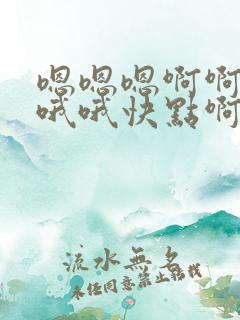 嗯嗯嗯啊啊
哦哦快點啊
流水無名
未经同意禁止转载